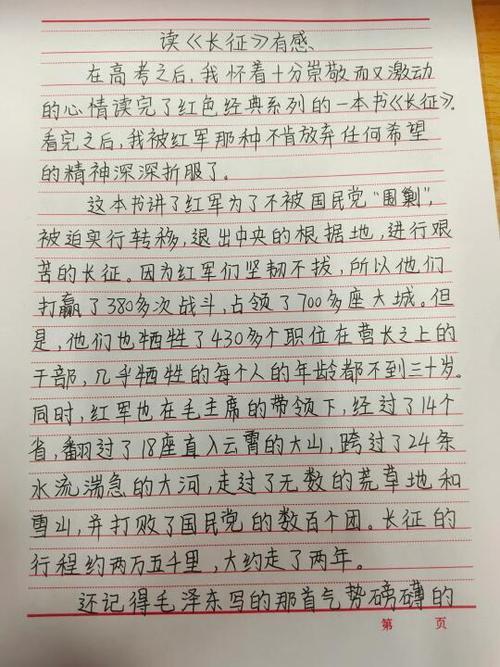 读《长征》有感
在高考之后,我怀着十分崇敬而又激动
的心情读完了红色经典系列的一本书《长征》.
看完之后,我被红军那种不肯放弃任何希望
的精神深深折服了。
这本书讲了红军为了不被国民党“围剿”,
被迫实行转移,退出中央的根据地,进行艰
苦的长征。因为红军们坚韧不拔,所以他们
打赢了380多次战斗,占领了700多座大城。但
是,他们也牺牲了430多个职位在营长之上的
干部,几乎牺牲的每个人的年龄都不到三十岁。
同时,红军也在毛主席的带领下,经过了14个
省,翻过了18座直入云霄的大山,跨过了24条
水流湍急的大河,走过了无数的荒草地和
雪山,并打败了国民党的数百个团。长征的
行程约两万五千里,大约走了两年。
还记得毛泽东写的那首气势磅礴的
第 页